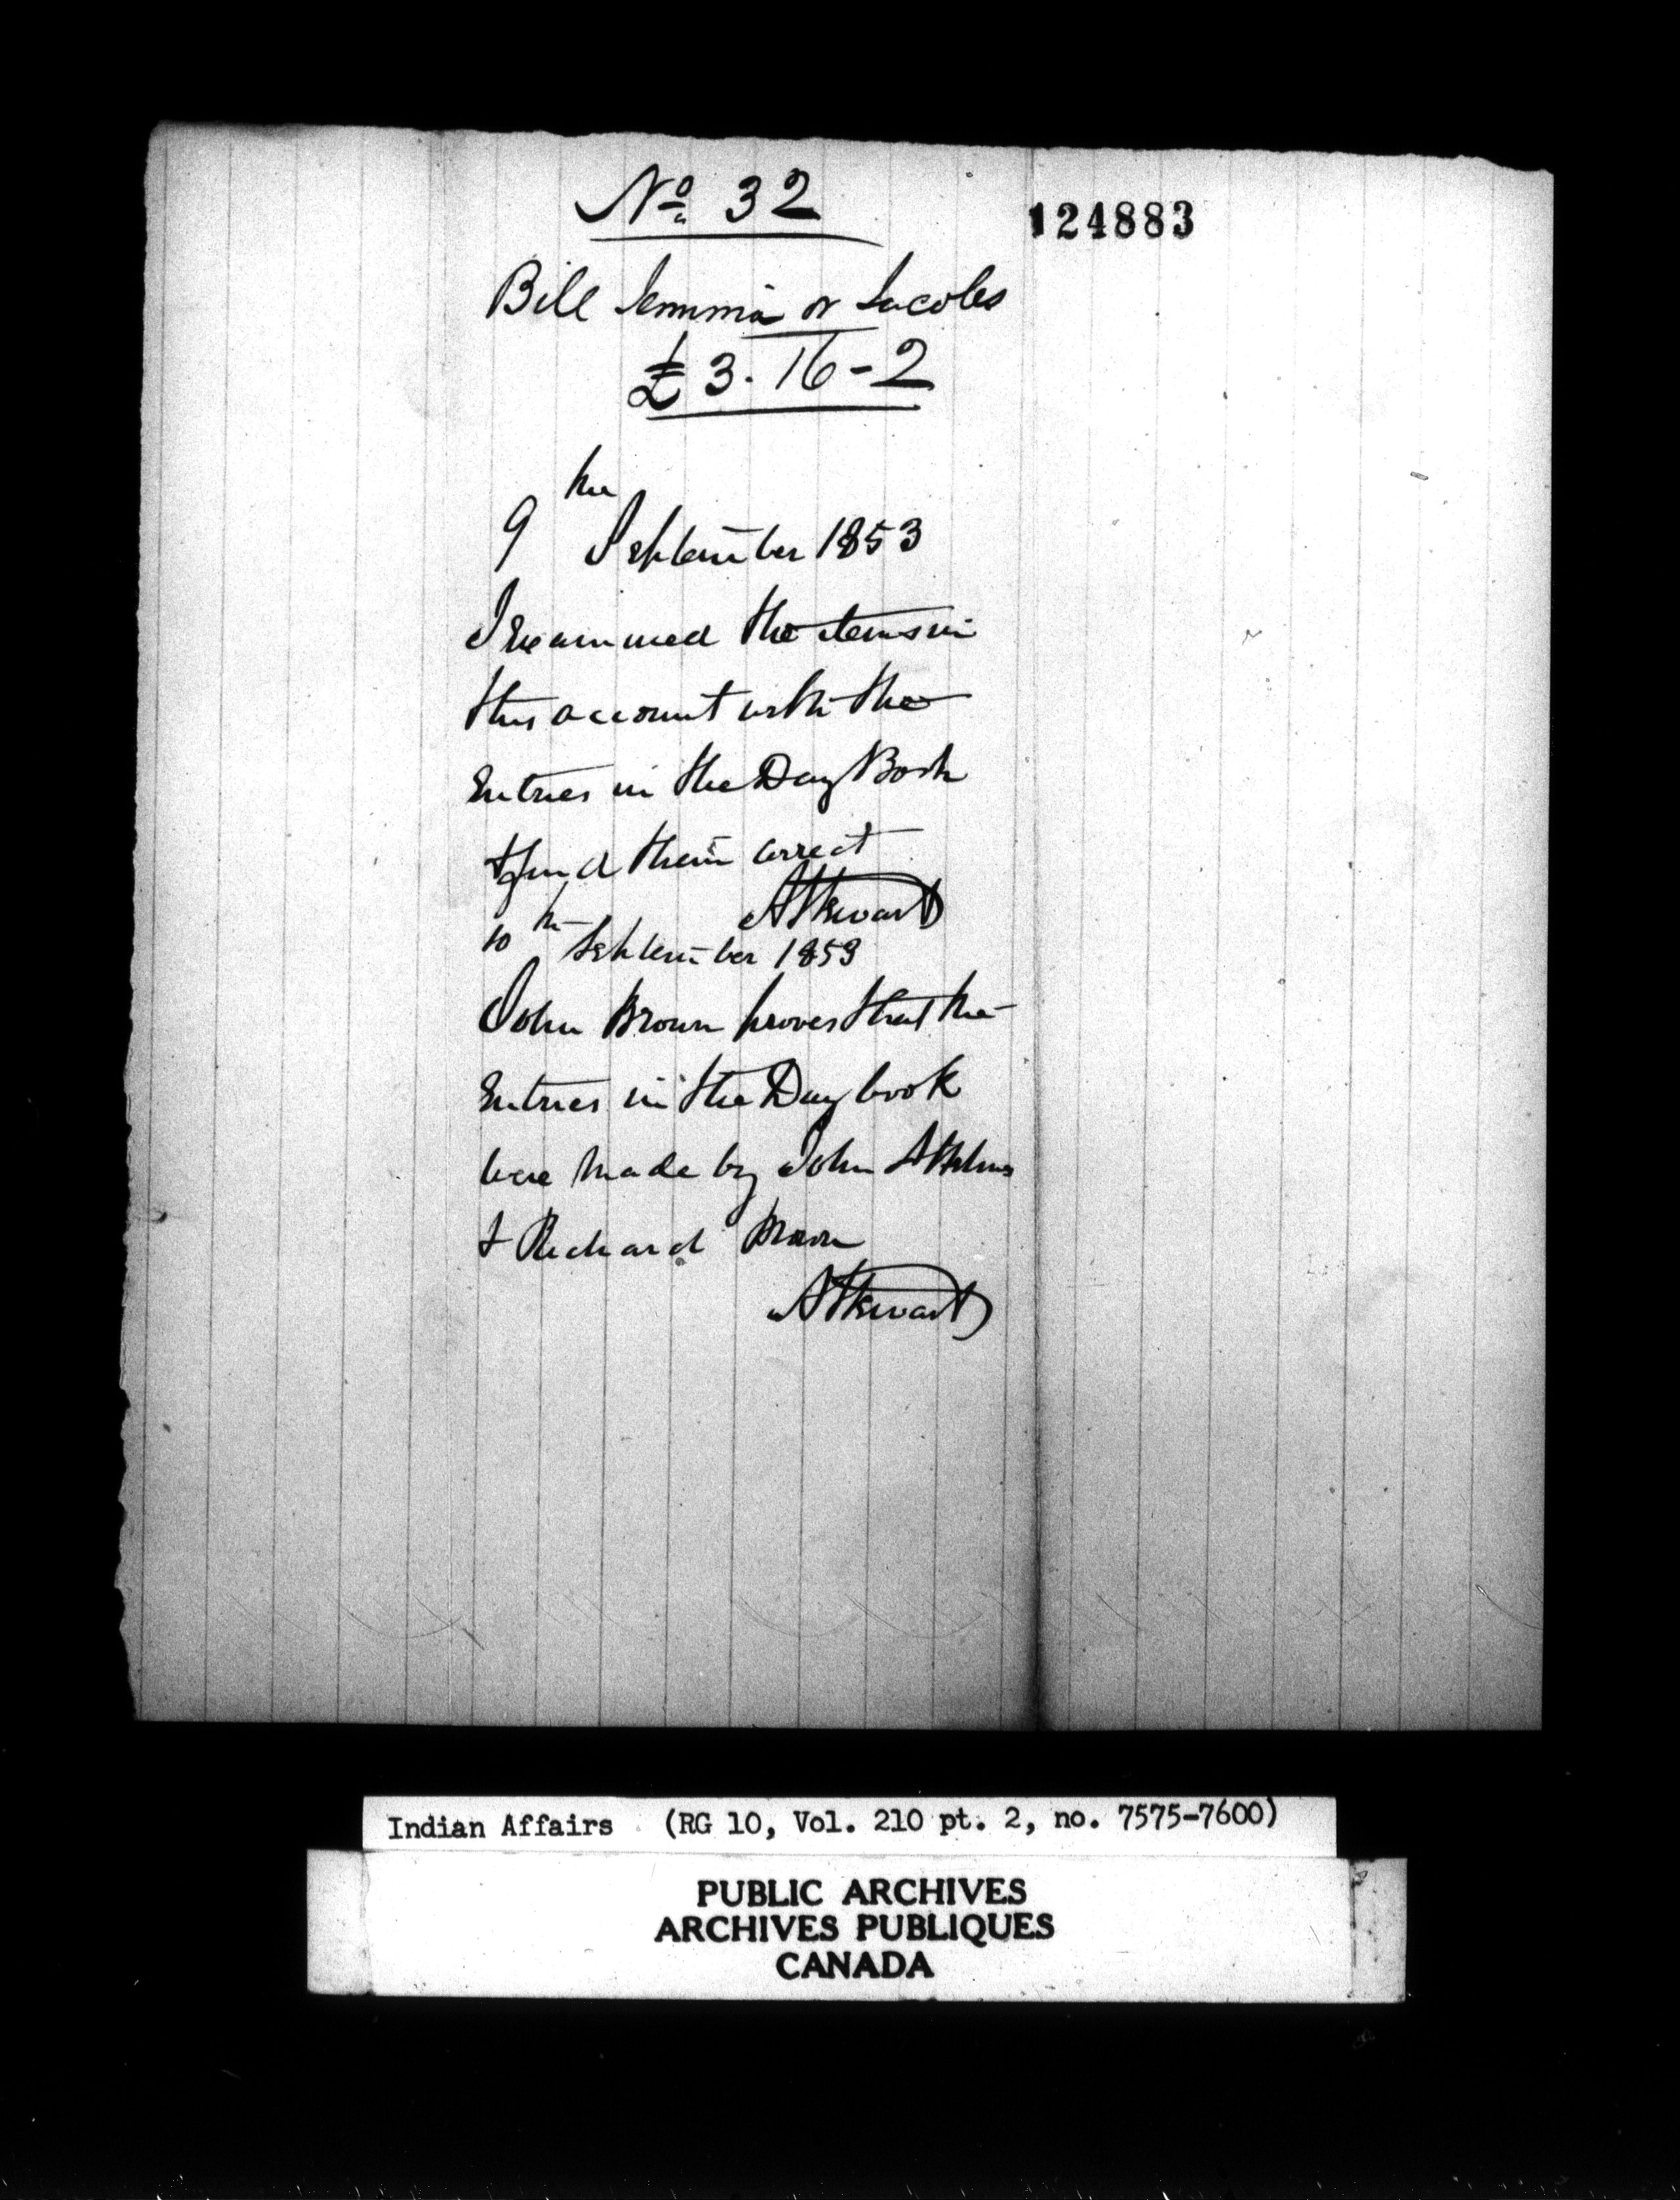 No. 32
124883
Bill Jemmia or Jacobs
£3.16-2
9th September 1853
I Examined the items in
this account with the
Entries in the Day Book
& find them correct
AStewart
10th September 1853
John Brown proves that the
Entries in the Day book
were made by John
& Richard Brown
AStewart
Indian Affairs (RG 10, Vol. 210 pt. 2, no. 7575-7600)
PUBLIC ARCHIVES
ARCHIVES PUBLIQUES
CANADA